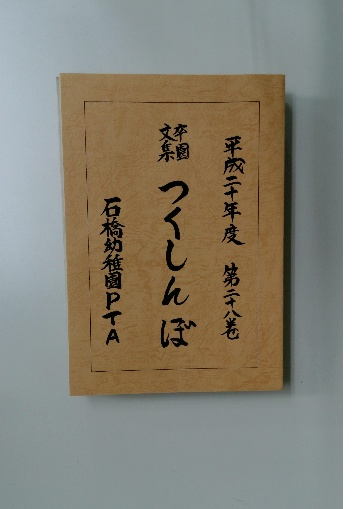 平成二十年度 第二十八巻
卒園
文集
つくしんぼ
石橋幼稚園PTA